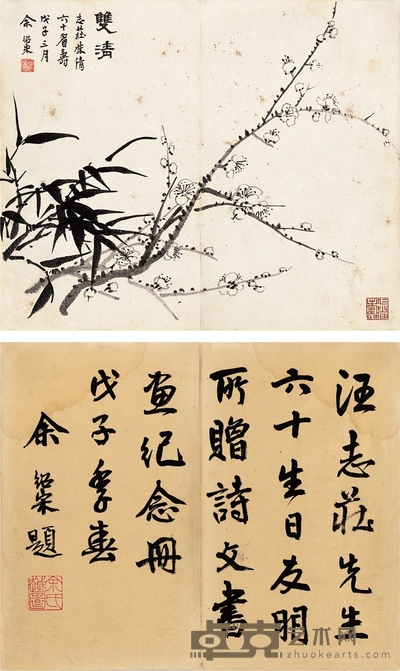 雙清
志莊
六十眉壽
戊子三月
余紹宋
汪志莊先生
六十生日友朋
所贈詩文書
畫紀念冊
戊子季春
余紹宋題
卓克艺术网
www.zhuokearts.com